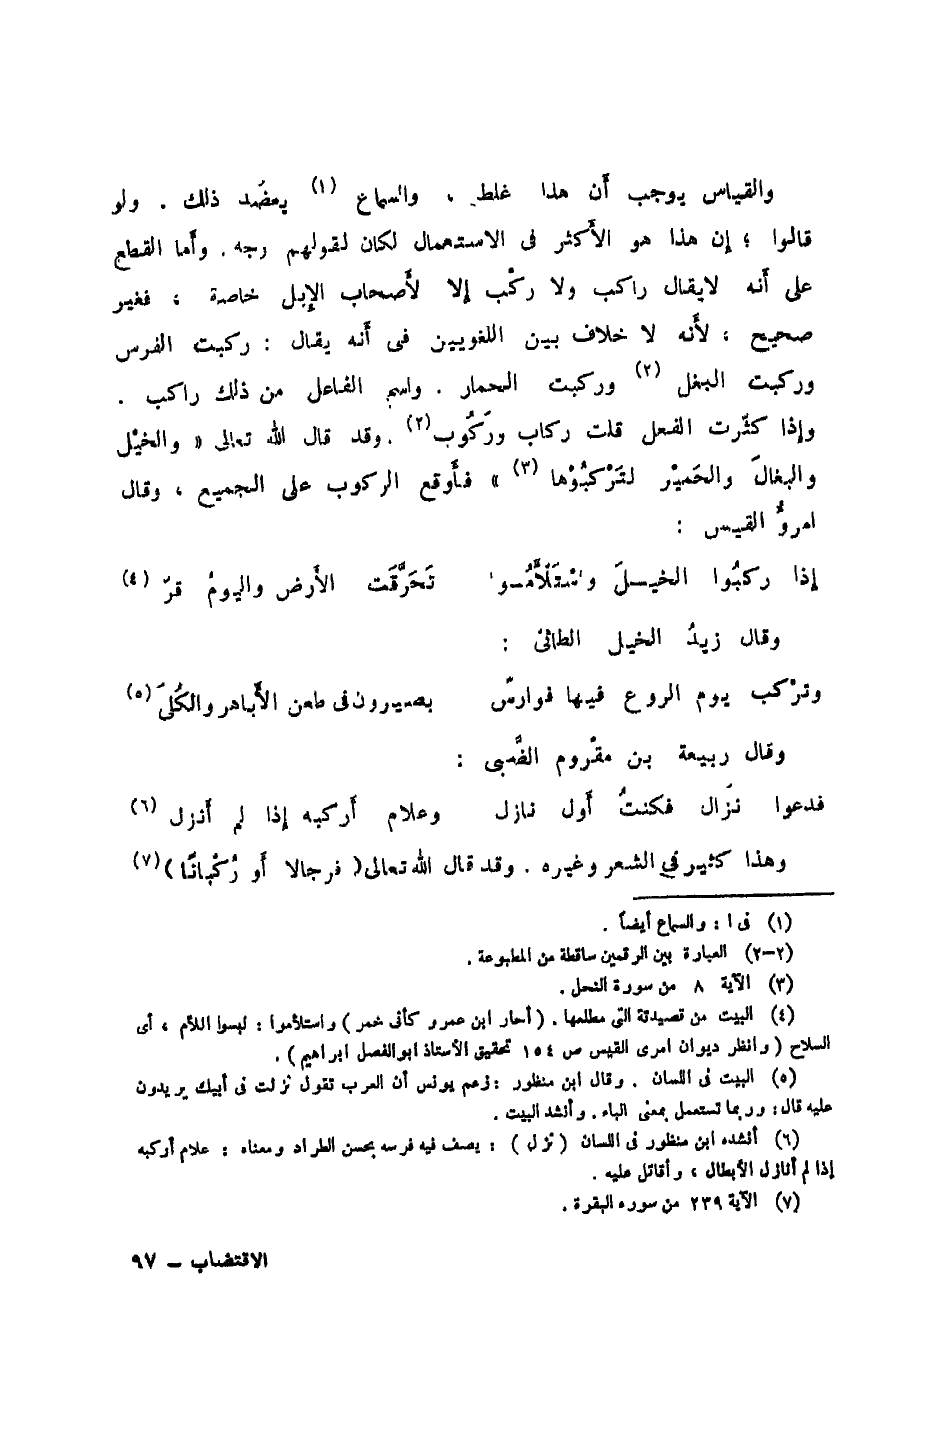 والقياس يوجب أن هذا غلط ، والسماع (١) يعضُد ذلك . ولو
قالوا ؛ إن هذا هو الأكثر فى الاستعمال لكان لقولهم وجه . وأما القطع
على أنه لايقال راكب ولا ركْب إلا لأصحاب الإبل خاصة ، فغير
صحيح ؛ لأنه لا خلاف بين اللغويين فى أنه يقال : ركبت الفرس
وركبت البغل (٢) وركبت الحمار . واسم الفاعل من ذلك راكب .
وإذا كثّرت الفعل قلت ركاب وركُوب(٢) .وقد قال الله تعالى « والخيْل
والبغالَ والحَميْر لتَرْكبُوْها (٣) » فأوقع الركوب على الجميع ، وقال
امروُّ القيس :
إذا ركبُوا الخيـلَ واسْتَلْأَمُـوا تَحَرَّقَت الأَرض واليومُ قرّ (٤)
وقال زيدُ الخيل الطائىّ :
وترْكب يوم الروع فيها فوارسٌ بصيرون فى طعن الأَباهر والكُلىَ (٥)
وقال ربيعة بن مقْروم الضَّبى :
فدعوا نزَال فكنتُ أول نازل وعلام أركبه إذا لم أنزل (٦)
وهذا كثير في الشعر وغيره . وقد قال الله تعالى( فرجالا أو رُكْبانًا )(٧)
(١) فى ا : والسماع أيضاً .
(٢-٢) العبارة بين الرقمين ساقطة من المطبوعة .
(٣) الآية ٨ من سورة النحل .
(٤) البيت من قصيدتة التى مطلعها . ( أحار ابن عمرو كأنى خمر ) واستلأموا : لبسوا اللأم ، أى
السلاح ( وانظر ديوان امرى القيس ص ١٥٤ تحقيق الأستاذ ابوالفصل ابراهيم ) .
(٥) البيت فى اللسان . وقال ابن منظور : زعم يونس أن العرب تقول نزلت فى أبيك يريدون
عليه قال: وربما تستعمل بمعنى الباء . وأنشد البيت .
(٦) أنشده ابن منظور فى اللسان ( نزل ) : يصف فيه فرسه بحسن الطراد ومعناه : علام أركبه
إذا لم أنازل الأبطال ، وأقاتل عليه .
(٧) الآية ٢٣٩ من سوره البقرة .
الاقتضاب – ٩٧